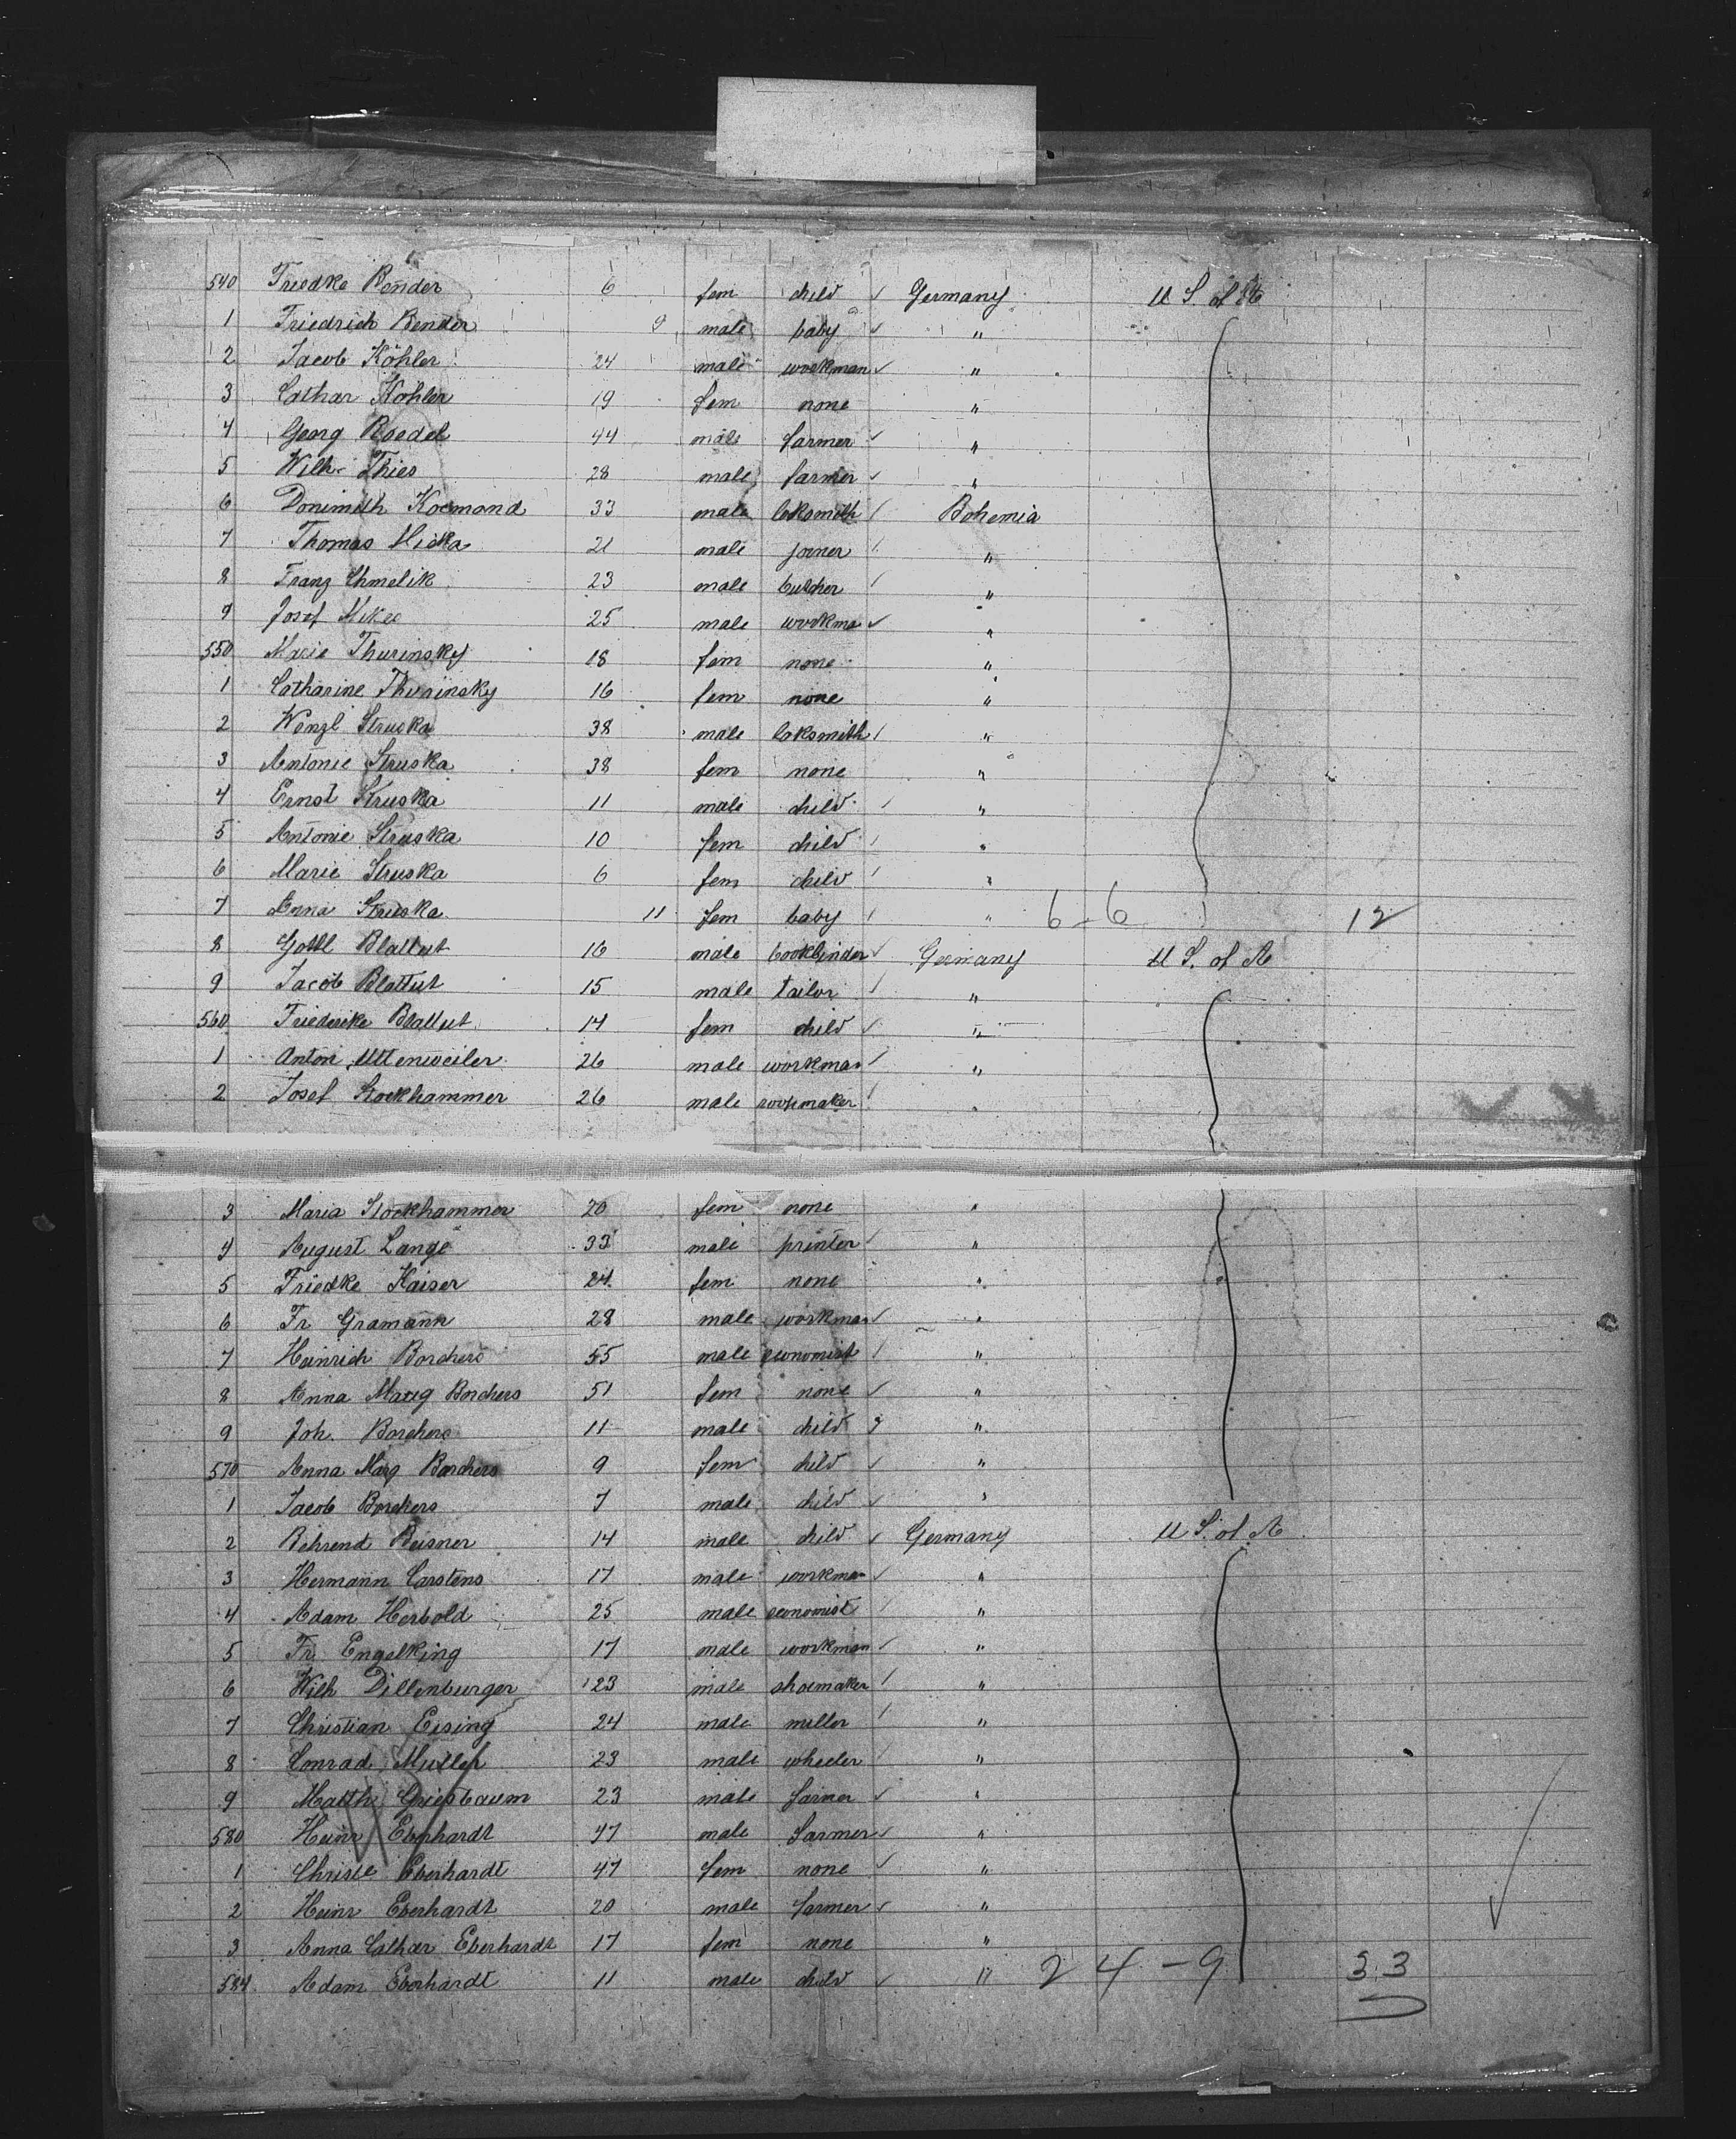 540 Friedke Bender 6 fem child Germany U S. of A
1 Friedrich Bender 9 male baby "
2 Jacob Köhler 24 male workman "
3 Cathar Köhler 19 fem none "
4 Georg Roedel 44 male farmer "
5 Wilh. Thies 28 male farmer "
6 Kocmond 33 male loksmith Bohemia
7 Thomas 21 male joiner "
8 Franz Chmelik 23 male butcher "
9 Josef Mikes 25 male workma "
550 Marie Thurinsky 18 fem none "
1 Catharine Thurinsky 16 fem none "
2 Wenzl Struska 38 male loksmith "
3 Antonie Struska 38 fem none "
4 Ernst Struska 11 male child "
5 Antonie Struska 10 fem child "
6 Marie Struska 6 fem child "
7 Anna Struska 11 fem baby " 6-6 12
8 Gottl Blattut 16 male bookbinder Germany U S. of A
9 Jacob Blattut 15 male tailor "
560 Friederike Blattut 14 fem child "
1 Anton Uttenweiler 26 male workman "
2 Josef Stockhammer 26 male "
3 Maria Stockhammer 20 fem none "
4 August Lange 33 male printer "
5 Friedke Kaiser 24 fem none "
6 Fr Gramann 28 male workman "
7 Heinrich Borchers 55 male economist "
8 Anna Marg Borchers 51 fem none "
9 Joh. Borchers 11 male child "
570 Anna Marg Borchers 9 fem child "
1 Jacob Borchers 7 male child "
2 Behrend Beisner 14 male child Germany U S. of A
3 Hermann Carstens 17 male workman "
4 Adam Herbold 25 male economist "
5 Fr. Engelking 17 male workman "
6 Wilh Dillenburger 23 male shoemaker "
7 Christian Eising 24 male miller "
8 Conrad Muller 23 male wheeler "
9 Matth Griesbaum 23 male farmer "
580 Heinr Eberhardt 47 male farmer "
1 Christe Eberhardt 47 fem none "
2 Heinr Eberhardt 20 male farmer "
3 Anna Cathar Eberhardt 17 fem none "
584 Adam Eberhardt 11 male child " 24-9 33